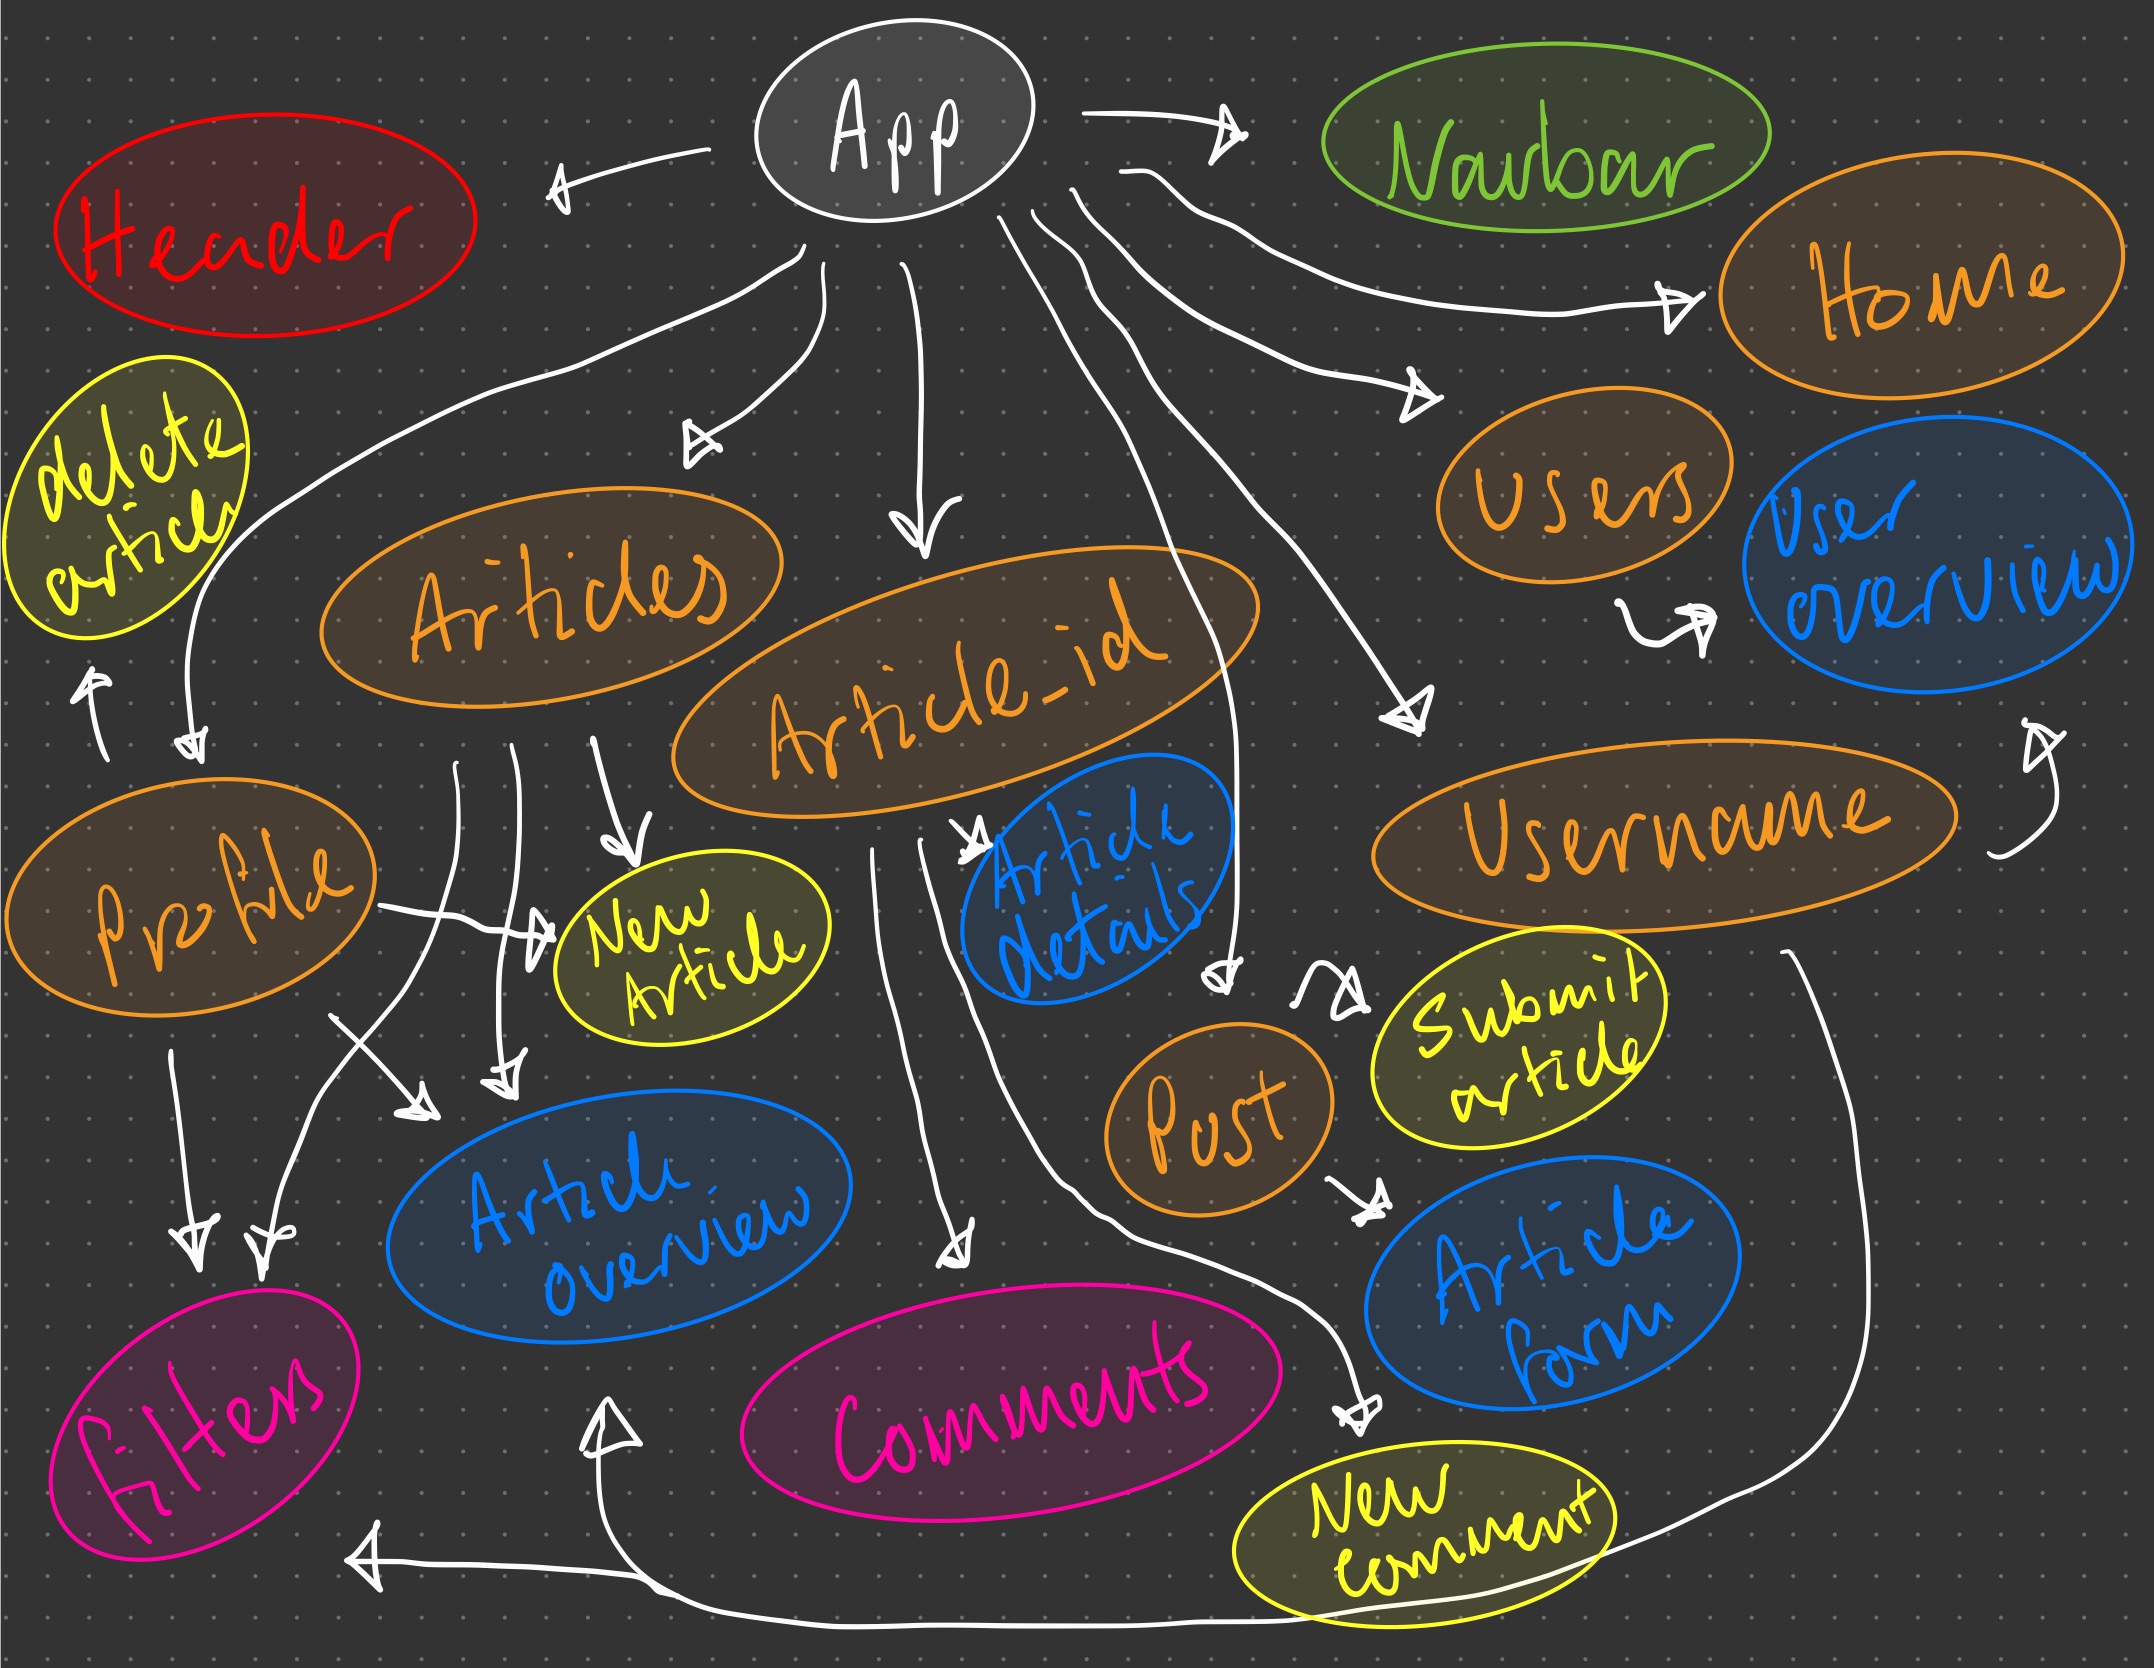 App
Navbar
Header
Home
delete
article
Users
User
overview
Articles
Article-id
Profile
New
Article
Article
details
Username
Submit
article
Post
Article
overview
Article
form
filters
Comments
New
Comment